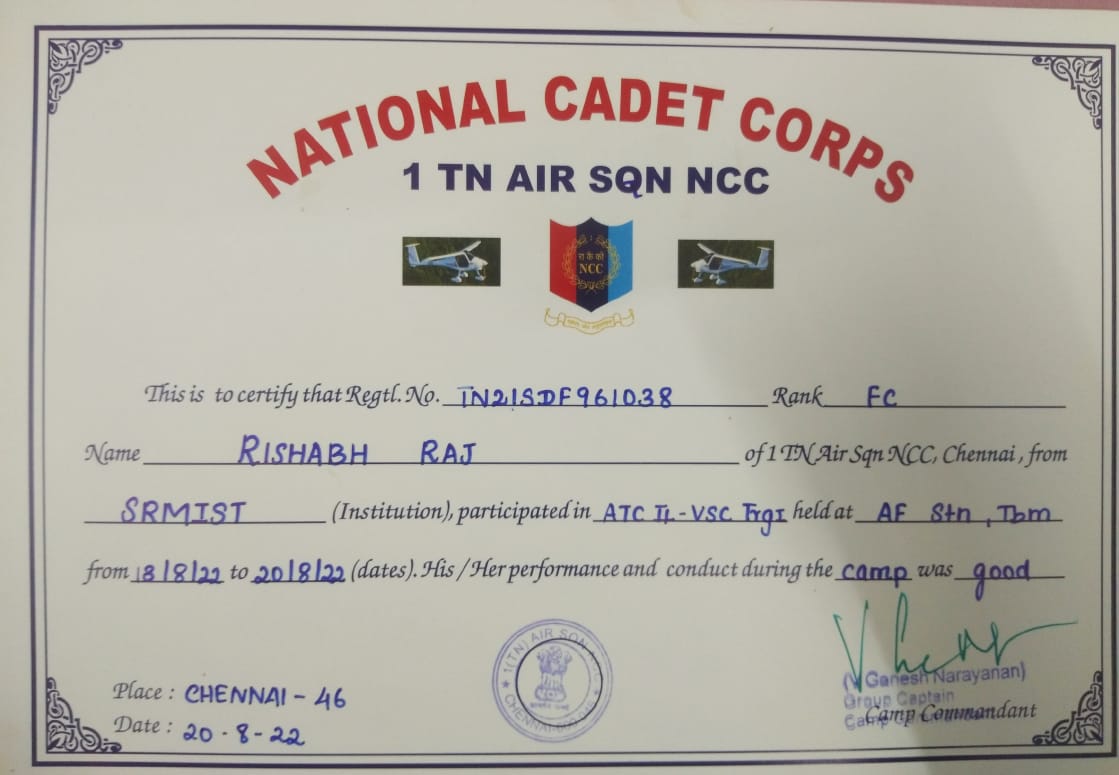 NATIONAL CADET CORPS
1 TN AIR SQN NCC
रा कै को
NCC
This is to certify that Regtl. No. TN21SDF961038 Rank FC
Name RISHABH RAJ of 1 TN Air Sqn NCC, Chennai, from
SRMIST (Institution), participated in ATC II - VSC Trg I held at AF Stn, Tbm
from 18/8/22 to 20/8/22 (dates). His / Her performance and conduct during the camp was good
1 (TN) AIR SQN NCC
CHENNAI
Ganesh Narayanan)
Group Captain
Camp Commandant
Place : CHENNAI - 46
Date : 20 - 8 - 22